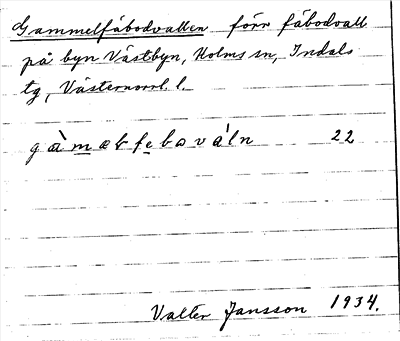 Gammelfäbodvallen förr fäbodvall
på byn Västbyn, Holms sn, Indals
tg, Västernorrl. l.
gàmæbfebováln 22
Valter Jansson 1934.